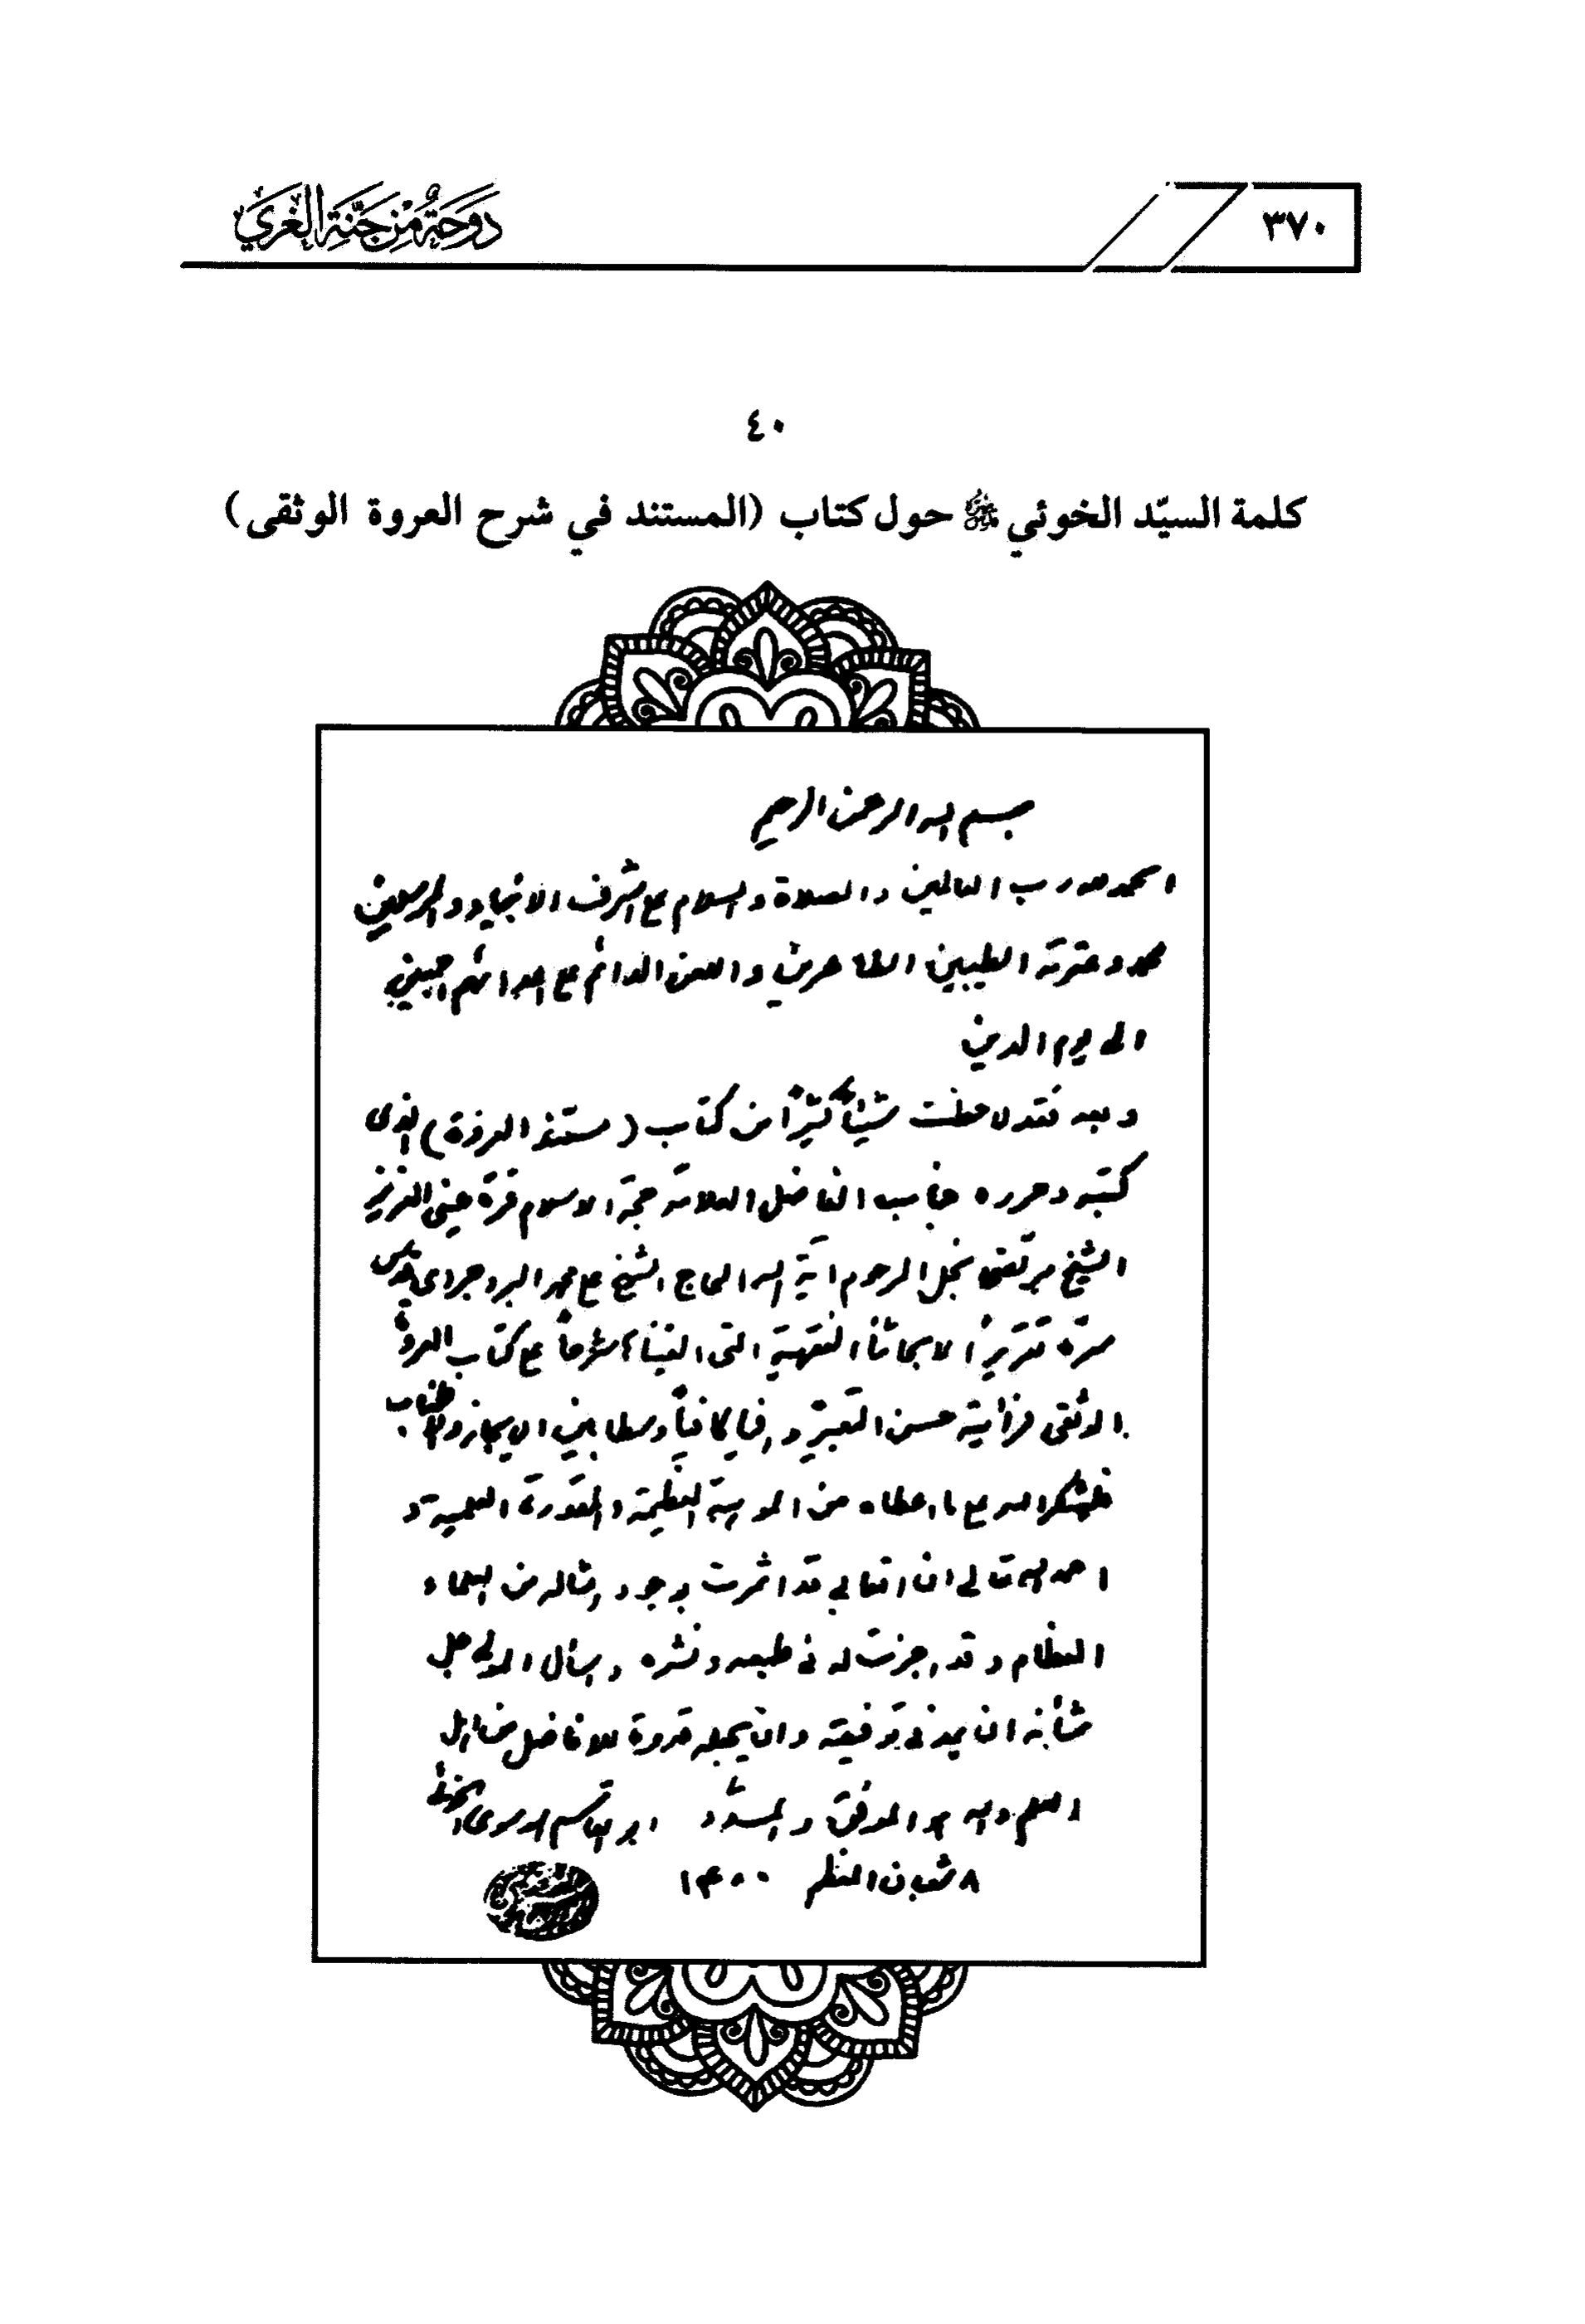 ٣٧٠
دوحة من جنة الغري
٤٠
كلمة السيّد الخوئي حول كتاب (المستند في شرح العروة الوثقى)
بسم الله الرحمن الرحيم
الحمد لله رب العالمين والصلاة والسلام على اشرف الانبياء والمرسلين
محمد وعترته الطيبين الطاهرين واللعن الدائم على اعدائهم اجمعين
الى يوم الدين
وبعد فقد لاحظت شيئاً كثيراً من كتاب (مستند العروة) الذى
كتبه وحرره جناب الفاضل العلامة حجة الاسلام قرة عينى العزيز
الشيخ مرتضى نجل المرحوم آية الله الحاج الشيخ على محمد البروجردى قدس
سره تقريراً لابحاثنا الفقهية التى القيناها شرحاً على كتاب العروة
الوثقى فرأيته حسن التعبير وافياً كافياً وسطا بين الايجاز والاطناب
فليشكر الله على ما اعطاه من الموهبة العظيمة والمقدرة العلمية و
احمد الله تعالى ان اتعابي قد اثمرت بوجود امثاله من العلماء
العظام وقد اجزت له فى طبعه ونشره واسأل المولى جل
شأنه ان يمد فى توفيقه وان يجعله قدوة للافاضل من اهل
العلم والله هو الموفق والمسدد ابو القاسم الموسوى الخوئى
٨ شعبان المعظم ١٤٠٠